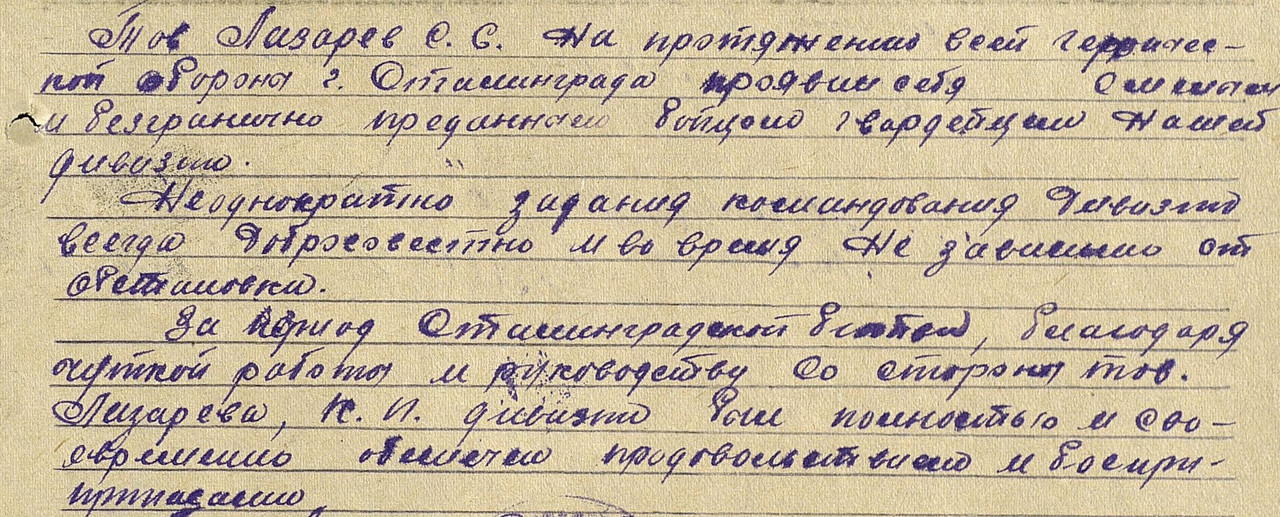 Тов Лазарев С. С. На протяжении всей героичес-
кой обороны г. Сталинграда проявил себя смелым
и безгранично преданным бойцом гвардейцем нашей
дивизии.
Неоднократно задания командования дивизии
всегда добросовестно и во время не зависимо от
обстановки.
За период Сталинградской битвы, благодаря
чуткой работы и руководству со стороны тов.
Лазарева, К. П. дивизии был полностью и сво-
евременно обеспечен продовольствием и боепри-
припасами.